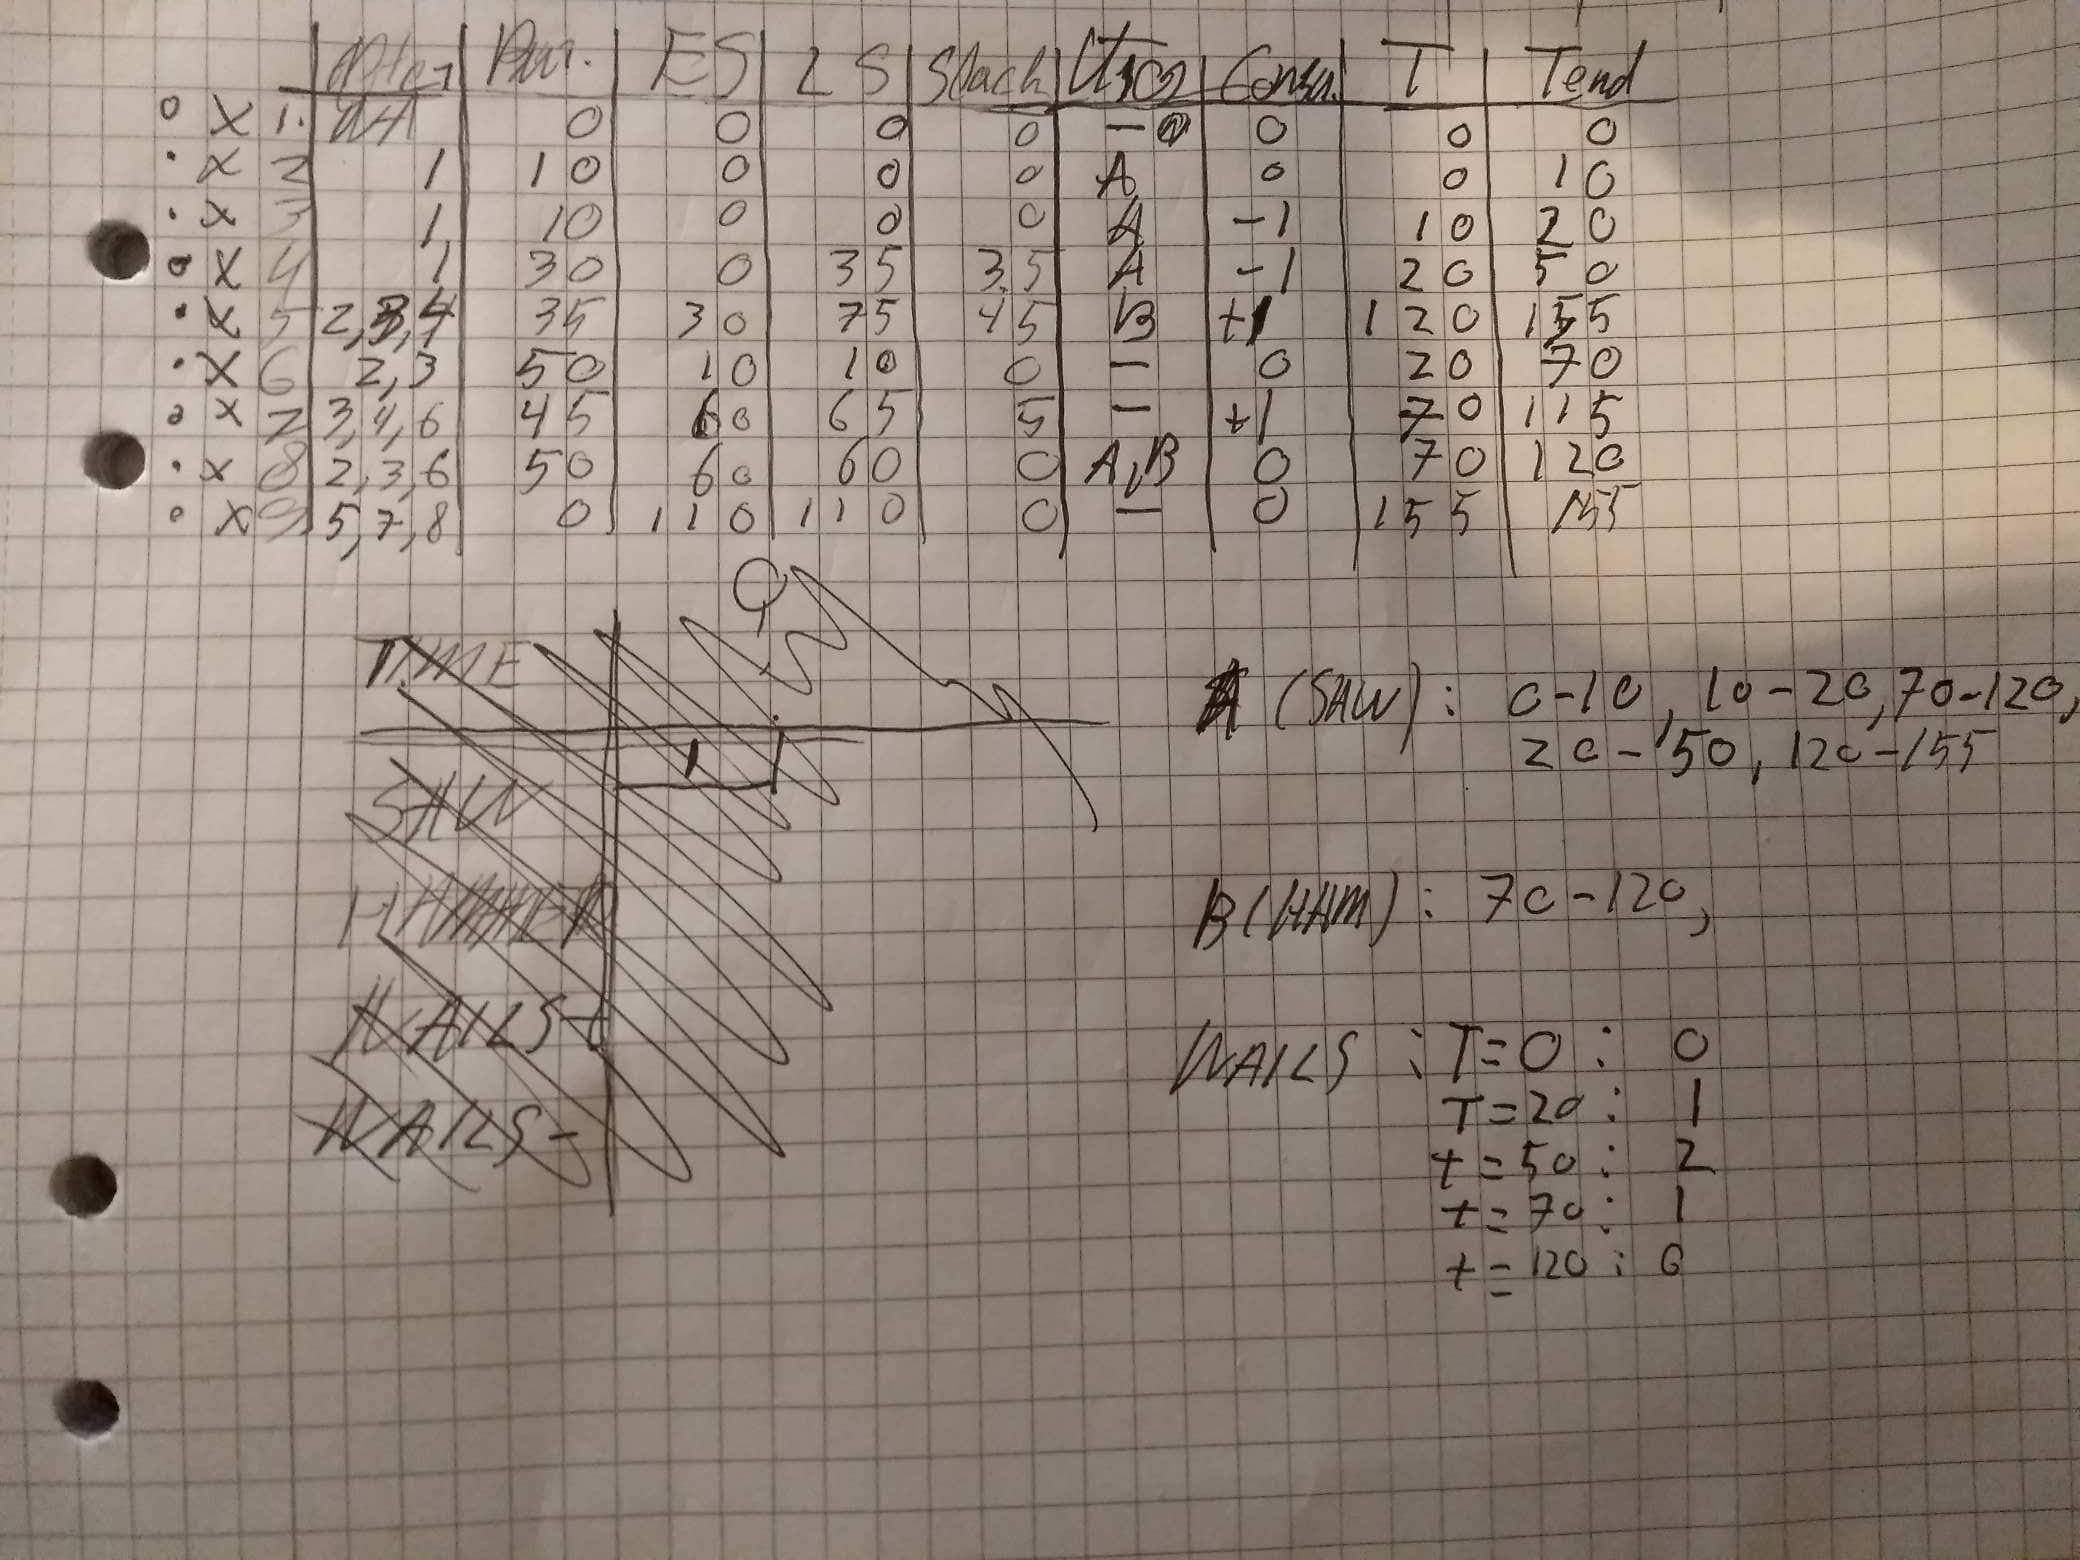 After Dur. ES LS Slack Uses Consu. T Tend
X 1. NA 0 0 0 0 - 0 0 0
X 2 1 10 0 0 0 A 0 0 10
X 3 1 10 0 0 0 A -1 10 20
X 4 1 30 0 35 35 A -1 20 50
X 5 2,3,4 35 30 75 45 B +1 120 155
X 6 2,3 50 10 10 0 - 0 20 70
X 7 3,4,6 45 60 65 5 - +1 70 115
X 8 2,3,6 50 60 60 0 A,B 0 70 120
X 9 5,7,8 0 110 110 0 - 0 155 155
TIME
1
SAW
HAMMER
NAILS+
NAILS-
A (SAW): 0-10, 10-20, 70-120,
20-50, 120-155
B(HAM): 70-120,
NAILS: T=0: 0
T=20: 1
t=50: 2
t=70: 1
t=120: 0